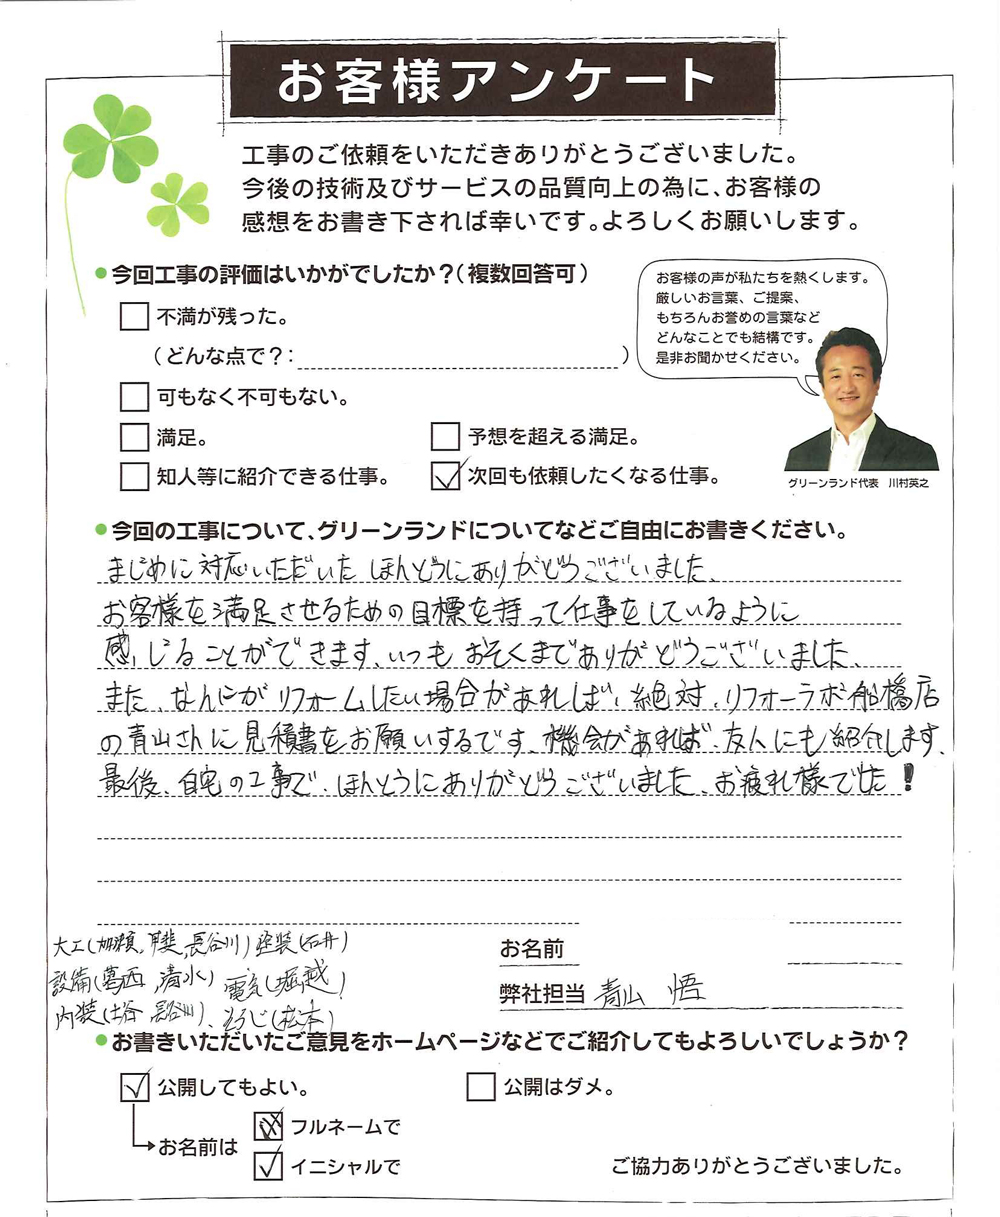 お客様アンケート
工事のご依頼をいただきありがとうございました。
今後の技術及びサービスの品質向上の為に、お客様の
感想をお書き下されば幸いです。よろしくお願いします。
今回工事の評価はいかがでしたか？（複数回答可）
お客様の声が私たちを熱くします。
厳しいお言葉、ご提案、
もちろんお誉めの言葉など
どんなことでも結構です。
是非お聞かせください。
不満が残った。
（どんな点で？： ）
可もなく不可もない。
満足。 予想を超える満足。
知人等に紹介できる仕事。 次回も依頼したくなる仕事。
グリーンランド代表 川村英之
今回の工事について、グリーンランドについてなどご自由にお書きください。
まじめに対応いただいた ほんどうにありがどうございました、
お客様を満足させるための目標を持って仕事をしているように
感じることができます、いつも おそくまでありがどうございました、
また、なんにがリフォームしたい場合があれば、絶対、リフォーラボ船橋店
の青山さんに見積書をお願いするです、機会があれば、友人にも紹介します、
最後、自宅の工事で、ほんとうにありがどうございました、お疲れ様でした！
大工(加瀬，甲斐，長谷川) 塗装(石井)
設備(葛西，清水) 電気(堀越)
内装(土谷，長谷川)、そうじ(松本)
お名前
弊社担当 青山 悟
お書きいただいたご意見をホームページなどでご紹介してもよろしいでしょうか？
公開してもよい。 公開はダメ。
お名前は
フルネームで
イニシャルで
ご協力ありがとうございました。